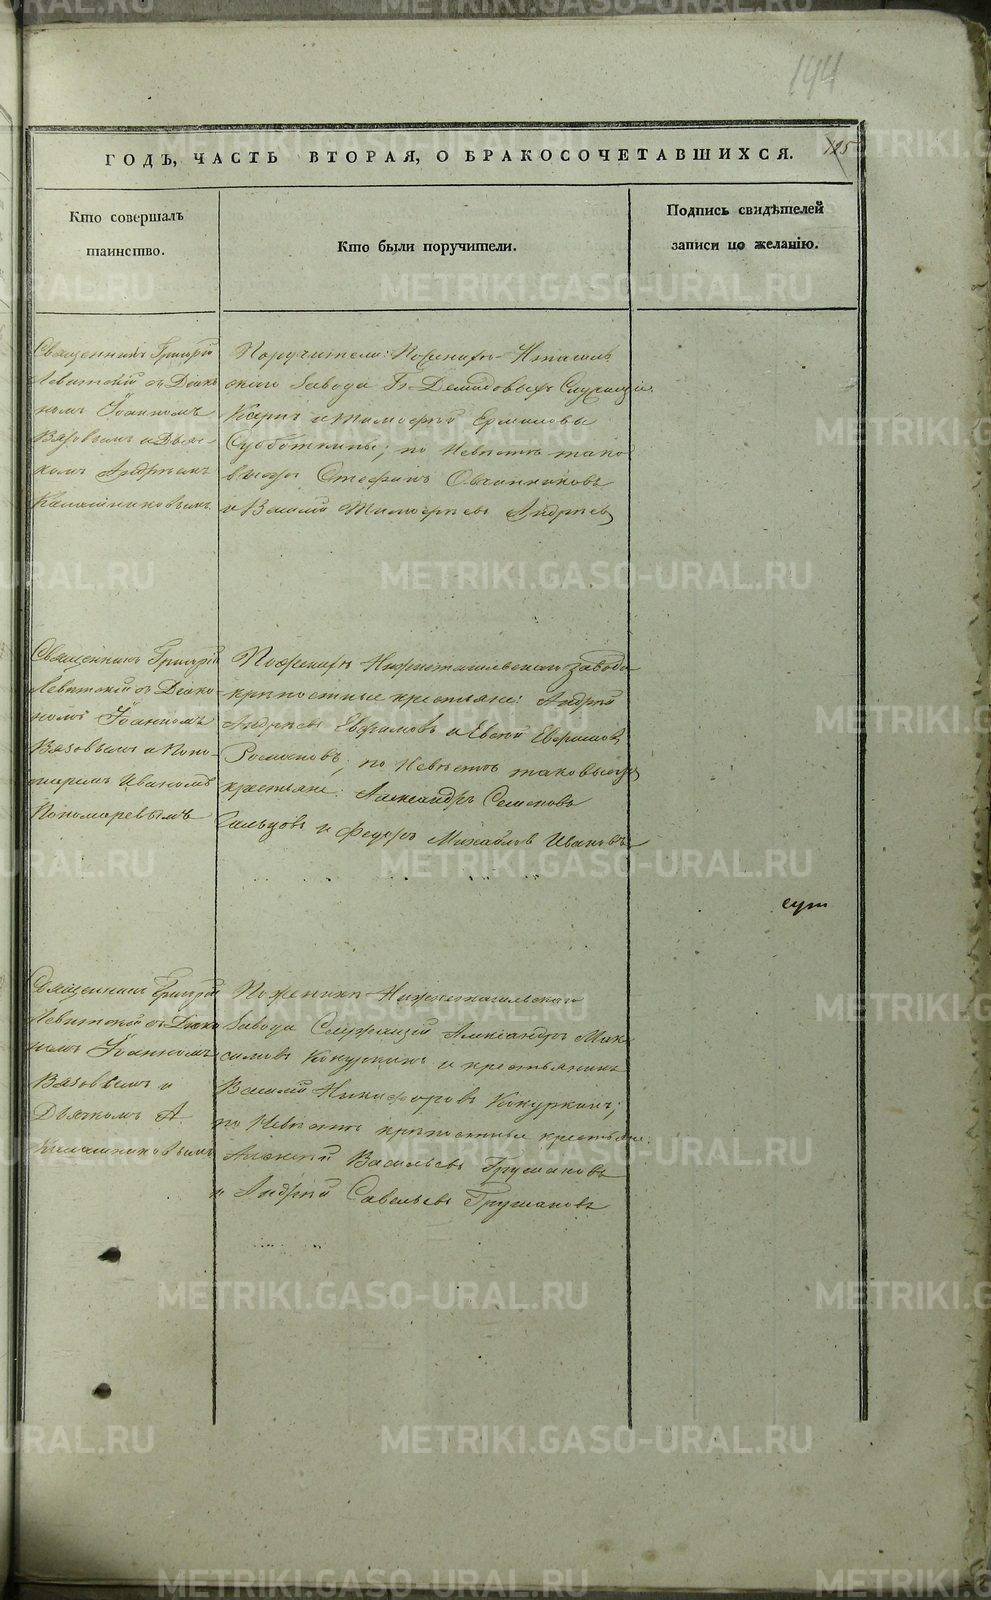 144
ГОДЪ, ЧАСТЬ ВТОРАЯ, О БРАКОСОЧЕТАВШИХСЯ.
Кто совершалъ
таинство.
Кто были поручители.
Подпись свидѣтелей
записи по желанію.
Священникъ Григорій
Левитскій съ Діако-
номъ Іоанномъ
Вязовымъ и Дьяч-
комъ Андреемъ
Калашниковымъ
Поручители: По Женихѣ Нтагиль
скаго завода Гг. Демидовыхъ Служащіе
Карпъ и Тимофей Ермиловы
Субботины; по Невѣстѣ тако
выежъ Стефанъ Овчинниковъ
и Василій Тимофеевъ Андреев
Священникъ Григорій
Левитскій съ Діако-
номъ Іоанномъ
Вязовымъ и Поно-
маремъ Иваномъ
Пономаревымъ
По женихѣ Нижнетагильскаго завода
крѣпостные крестьяне: Андрей
Андреевъ Евфимовъ и Евсей Евфимов
Романовъ; по Невѣстѣ таковыежъ
крестьяне: Александръ Семеновъ
и Федоръ Михайловъ Ивановъ
сут
Священникъ Григорій
Левитскій съ Діако
номъ Іоанномъ
Вязовымъ и
Дьячкомъ А
Калашниковымъ
По женихѣ Нижнетагильскаго
завода Служащій Александръ Мак
симовъ Кокуркинъ и крестьянинъ
Василій Никифоровъ Кокуркинъ;
по Невѣстѣ крѣпостные крестьяне:
Алексѣй Васильевъ Грушановъ
и Андрей Савельевъ Грушановъ
METRIKI.GASO-URAL.RU